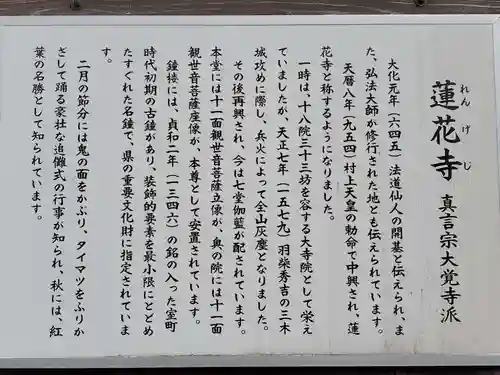 れんげじ
蓮花寺 真言宗大覚寺派
大化元年（六四五）法道仙人の開基と伝えられ、ま
た、弘法大師が修行された地とも伝えられています。
天暦八年（九五四）村上天皇の勅命で中興され、蓮
花寺と称するようになりました。
一時は、十八院三十三坊を容する大寺院として栄え
ていましたが、天正七年（一五七九）羽柴秀吉の三木
城攻めに際し、兵火によって全山灰塵となりました。
その後再興され、今は七堂伽藍が配されています。
本堂には十一面観世音菩薩立像が、奥の院には十一面
観世音菩薩座像が、本尊として安置されています。
鐘楼には、貞和二年（一三四六）の銘の入った室町
時代初期の古鐘があり、装飾的要素を最小限にとどめ
たすぐれた名鐘で、県の重要文化財に指定されていま
す。
二月の節分には鬼の面をかぶり、タイマツをふりか
ざして踊る豪壮な追儺式の行事が知られ、秋には、紅
葉の名勝として知られています。